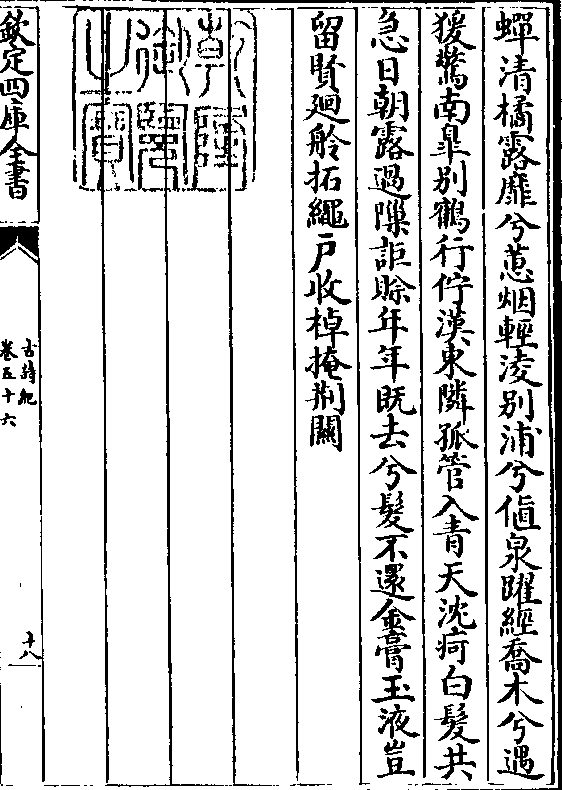 蟬清橘露靡兮蕙烟輕淩别浦兮值泉躍經喬木兮遇
猨驚南臯别鶴行佇漢東隣孤管入青天沈痾白髮共
急日朝露過隟詎賒年年既去兮髮不還金膏玉液豈
留賢廻舲拓繩户收棹掩荆關
乾隆御覽之寳
欽定四庫全書
古詩紀
卷五十六
十八